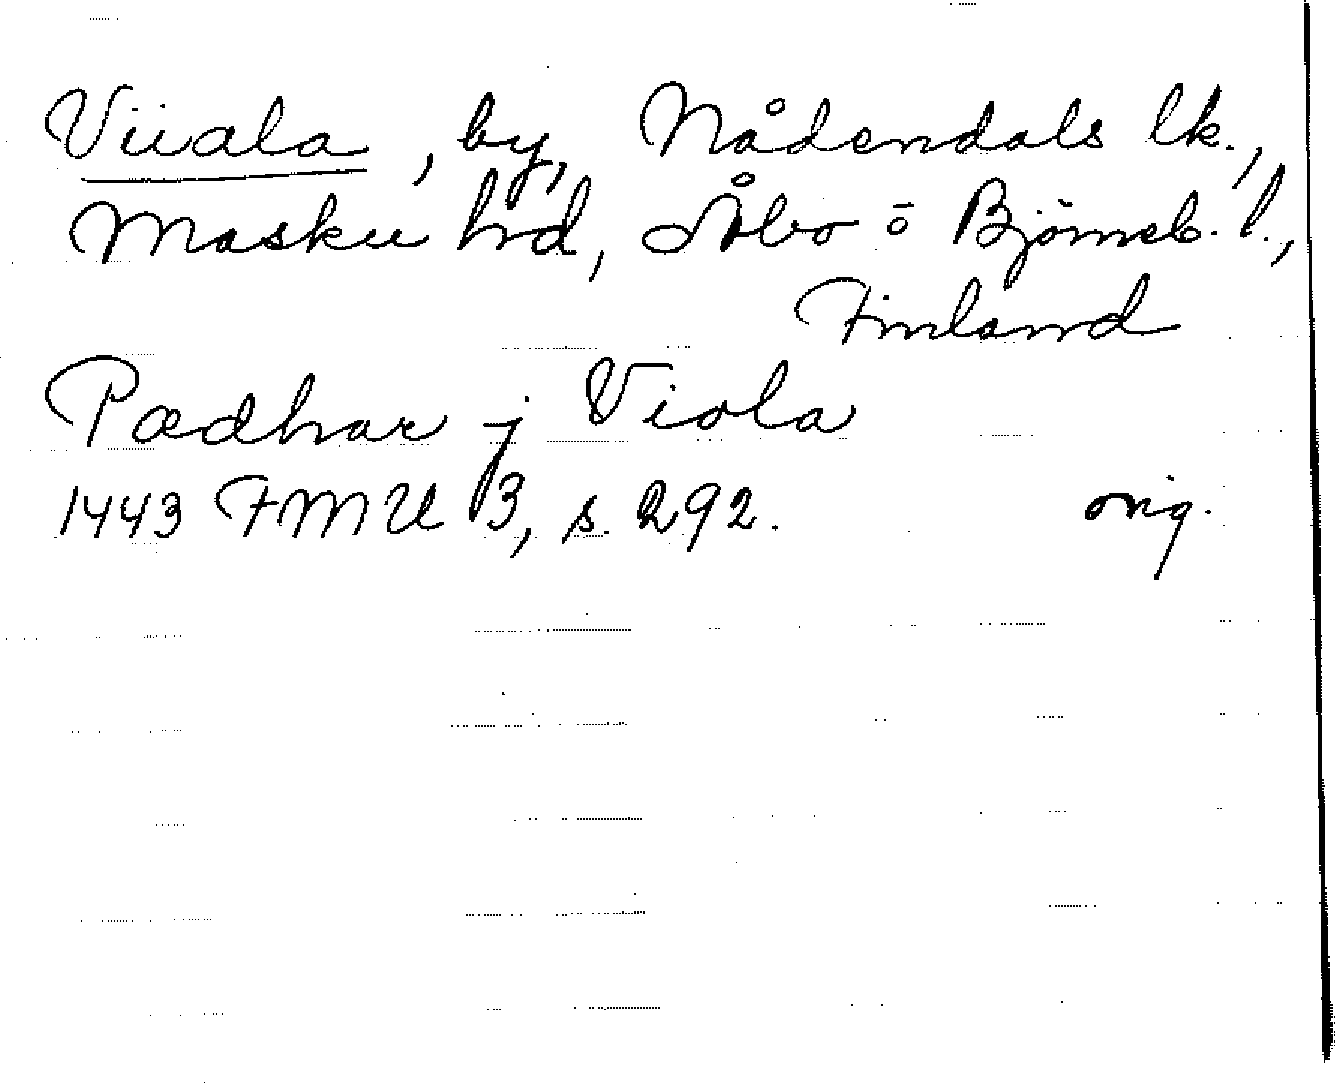 Viiala, by, Nådendals lk.,
Masku hd, Åbo o Björneb. l.,
Finland
Pædhar j Viola
1443 FMU 3, s. 292. orig.